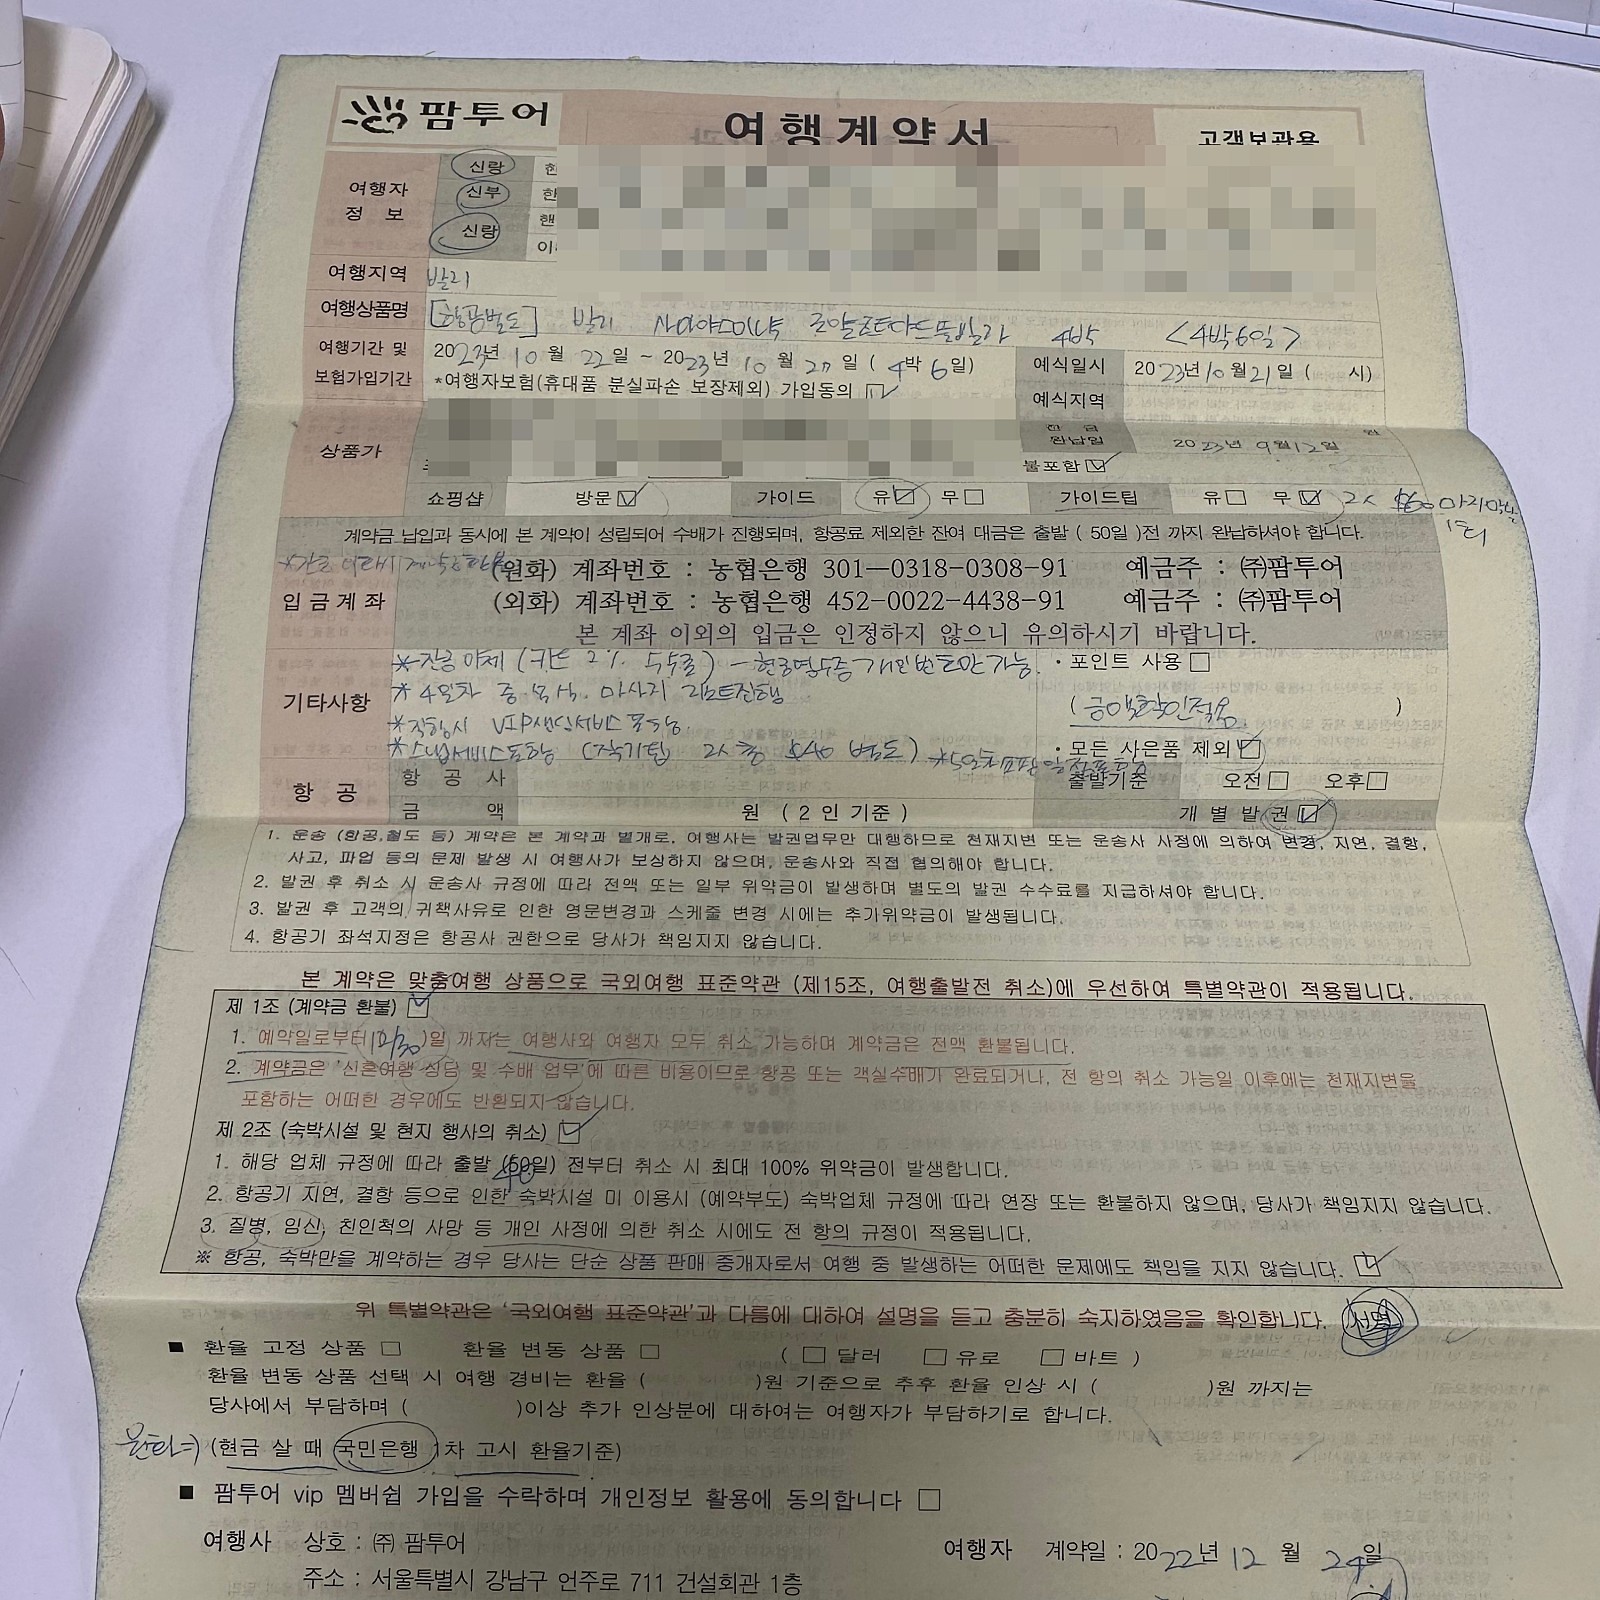 팜투어
여행계약서
고객보관용
여행자 정보
신랑
신부
신랑
여행지역 발리
여행상품명 [항공별도] 발리 사마야스미냑 로얄코트야드풀빌라 4박 <4박6일>
여행기간 및 보험가입기간 2023년 10월 22일 ~ 2023년 10월 27일 ( 4박 6일)
*여행자보험(휴대품 분실파손 보장제외) 가입동의 ☑
예식일시 2023년 10월 21일 ( 시)
예식지역
상품가
잔금 완납일 2023년 9월 12일
불포함 ☑
쇼핑샵 방문 ☑ 가이드 유 ☑ 무 □ 가이드팁 유 □ 무 ☑
계약금 납입과 동시에 본 계약이 성립되어 수배가 진행되며, 항공료 제외한 잔여 대금은 출발 ( 50일 )전 까지 완납하셔야 합니다.
입금계좌
(원화) 계좌번호 : 농협은행 301—0318-0308-91 예금주 : ㈜팜투어
(외화) 계좌번호 : 농협은행 452-0022-4438-91 예금주 : ㈜팜투어
본 계좌 이외의 입금은 인정하지 않으니 유의하시기 바랍니다.
기타사항
*잔금 이체 (카드 2% 수수료) - 현금영수증 개인번호만 가능.
· 포인트 사용 □
*4일차 중·석식. 마사지 리조트진행
*직항시 VIP샌딩서비스 포함.
· 모든 사은품 제외 ☑
*스냅서비스포함 (작가팁 2人 총 $40 별도)
항공 항공사 출발기준 오전 □ 오후 □
금액 원 ( 2 인 기준 ) 개별발권 ☑
1. 운송 (항공,철도 등) 계약은 본 계약과 별개로, 여행사는 발권업무만 대행하므로 천재지변 또는 운송사 사정에 의하여 변경, 지연, 결항,
사고, 파업 등의 문제 발생 시 여행사가 보상하지 않으며, 운송사와 직접 협의해야 합니다.
2. 발권 후 취소 시 운송사 규정에 따라 전액 또는 일부 위약금이 발생하며 별도의 발권 수수료를 지급하셔야 합니다.
3. 발권 후 고객의 귀책사유로 인한 영문변경과 스케줄 변경 시에는 추가위약금이 발생됩니다.
4. 항공기 좌석지정은 항공사 권한으로 당사가 책임지지 않습니다.
본 계약은 맞춤여행 상품으로 국외여행 표준약관 (제15조, 여행출발전 취소)에 우선하여 특별약관이 적용됩니다.
제 1조 (계약금 환불) ☑
1. 예약일로부터(12/30)일 까지는 여행사와 여행자 모두 취소 가능하며 계약금은 전액 환불됩니다.
2. 계약금은 '신혼여행 상담 및 수배 업무'에 따른 비용이므로 항공 또는 객실수배가 완료되거나, 전 항의 취소 가능일 이후에는 천재지변을
포함하는 어떠한 경우에도 반환되지 않습니다.
제 2조 (숙박시설 및 현지 행사의 취소) ☑
1. 해당 업체 규정에 따라 출발 (50일) 전부터 취소 시 최대 100% 위약금이 발생합니다.
2. 항공기 지연, 결항 등으로 인한 숙박시설 미 이용시 (예약부도) 숙박업체 규정에 따라 연장 또는 환불하지 않으며, 당사가 책임지지 않습니다.
3. 질병, 임신, 친인척의 사망 등 개인 사정에 의한 취소 시에도 전 항의 규정이 적용됩니다.
※ 항공, 숙박만을 계약하는 경우 당사는 단순 상품 판매 중개자로서 여행 중 발생하는 어떠한 문제에도 책임을 지지 않습니다. ☑
위 특별약관은 '국외여행 표준약관'과 다름에 대하여 설명을 듣고 충분히 숙지하였음을 확인합니다. 서명
■ 환율 고정 상품 □ 환율 변동 상품 □ ( □ 달러 □ 유로 □ 바트 )
환율 변동 상품 선택 시 여행 경비는 환율 ( )원 기준으로 추후 환율 인상 시 ( )원 까지는
당사에서 부담하며 ( )이상 추가 인상분에 대하여는 여행자가 부담하기로 합니다.
(현금 살 때 국민은행 1차 고시 환율기준)
■ 팜투어 vip 멤버쉽 가입을 수락하며 개인정보 활용에 동의합니다 □
여행사 상호 : ㈜ 팜투어 여행자 계약일 : 2022년 12월 24일
주소 : 서울특별시 강남구 언주로 711 건설회관 1층